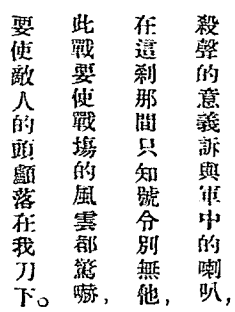 殺聲的意義訴與軍中的喇叭，
在這剎那間只知號令別無他，
此戰要使戰場的風雲都驚嚇，
要使敵人的頭顱落在我刀下。